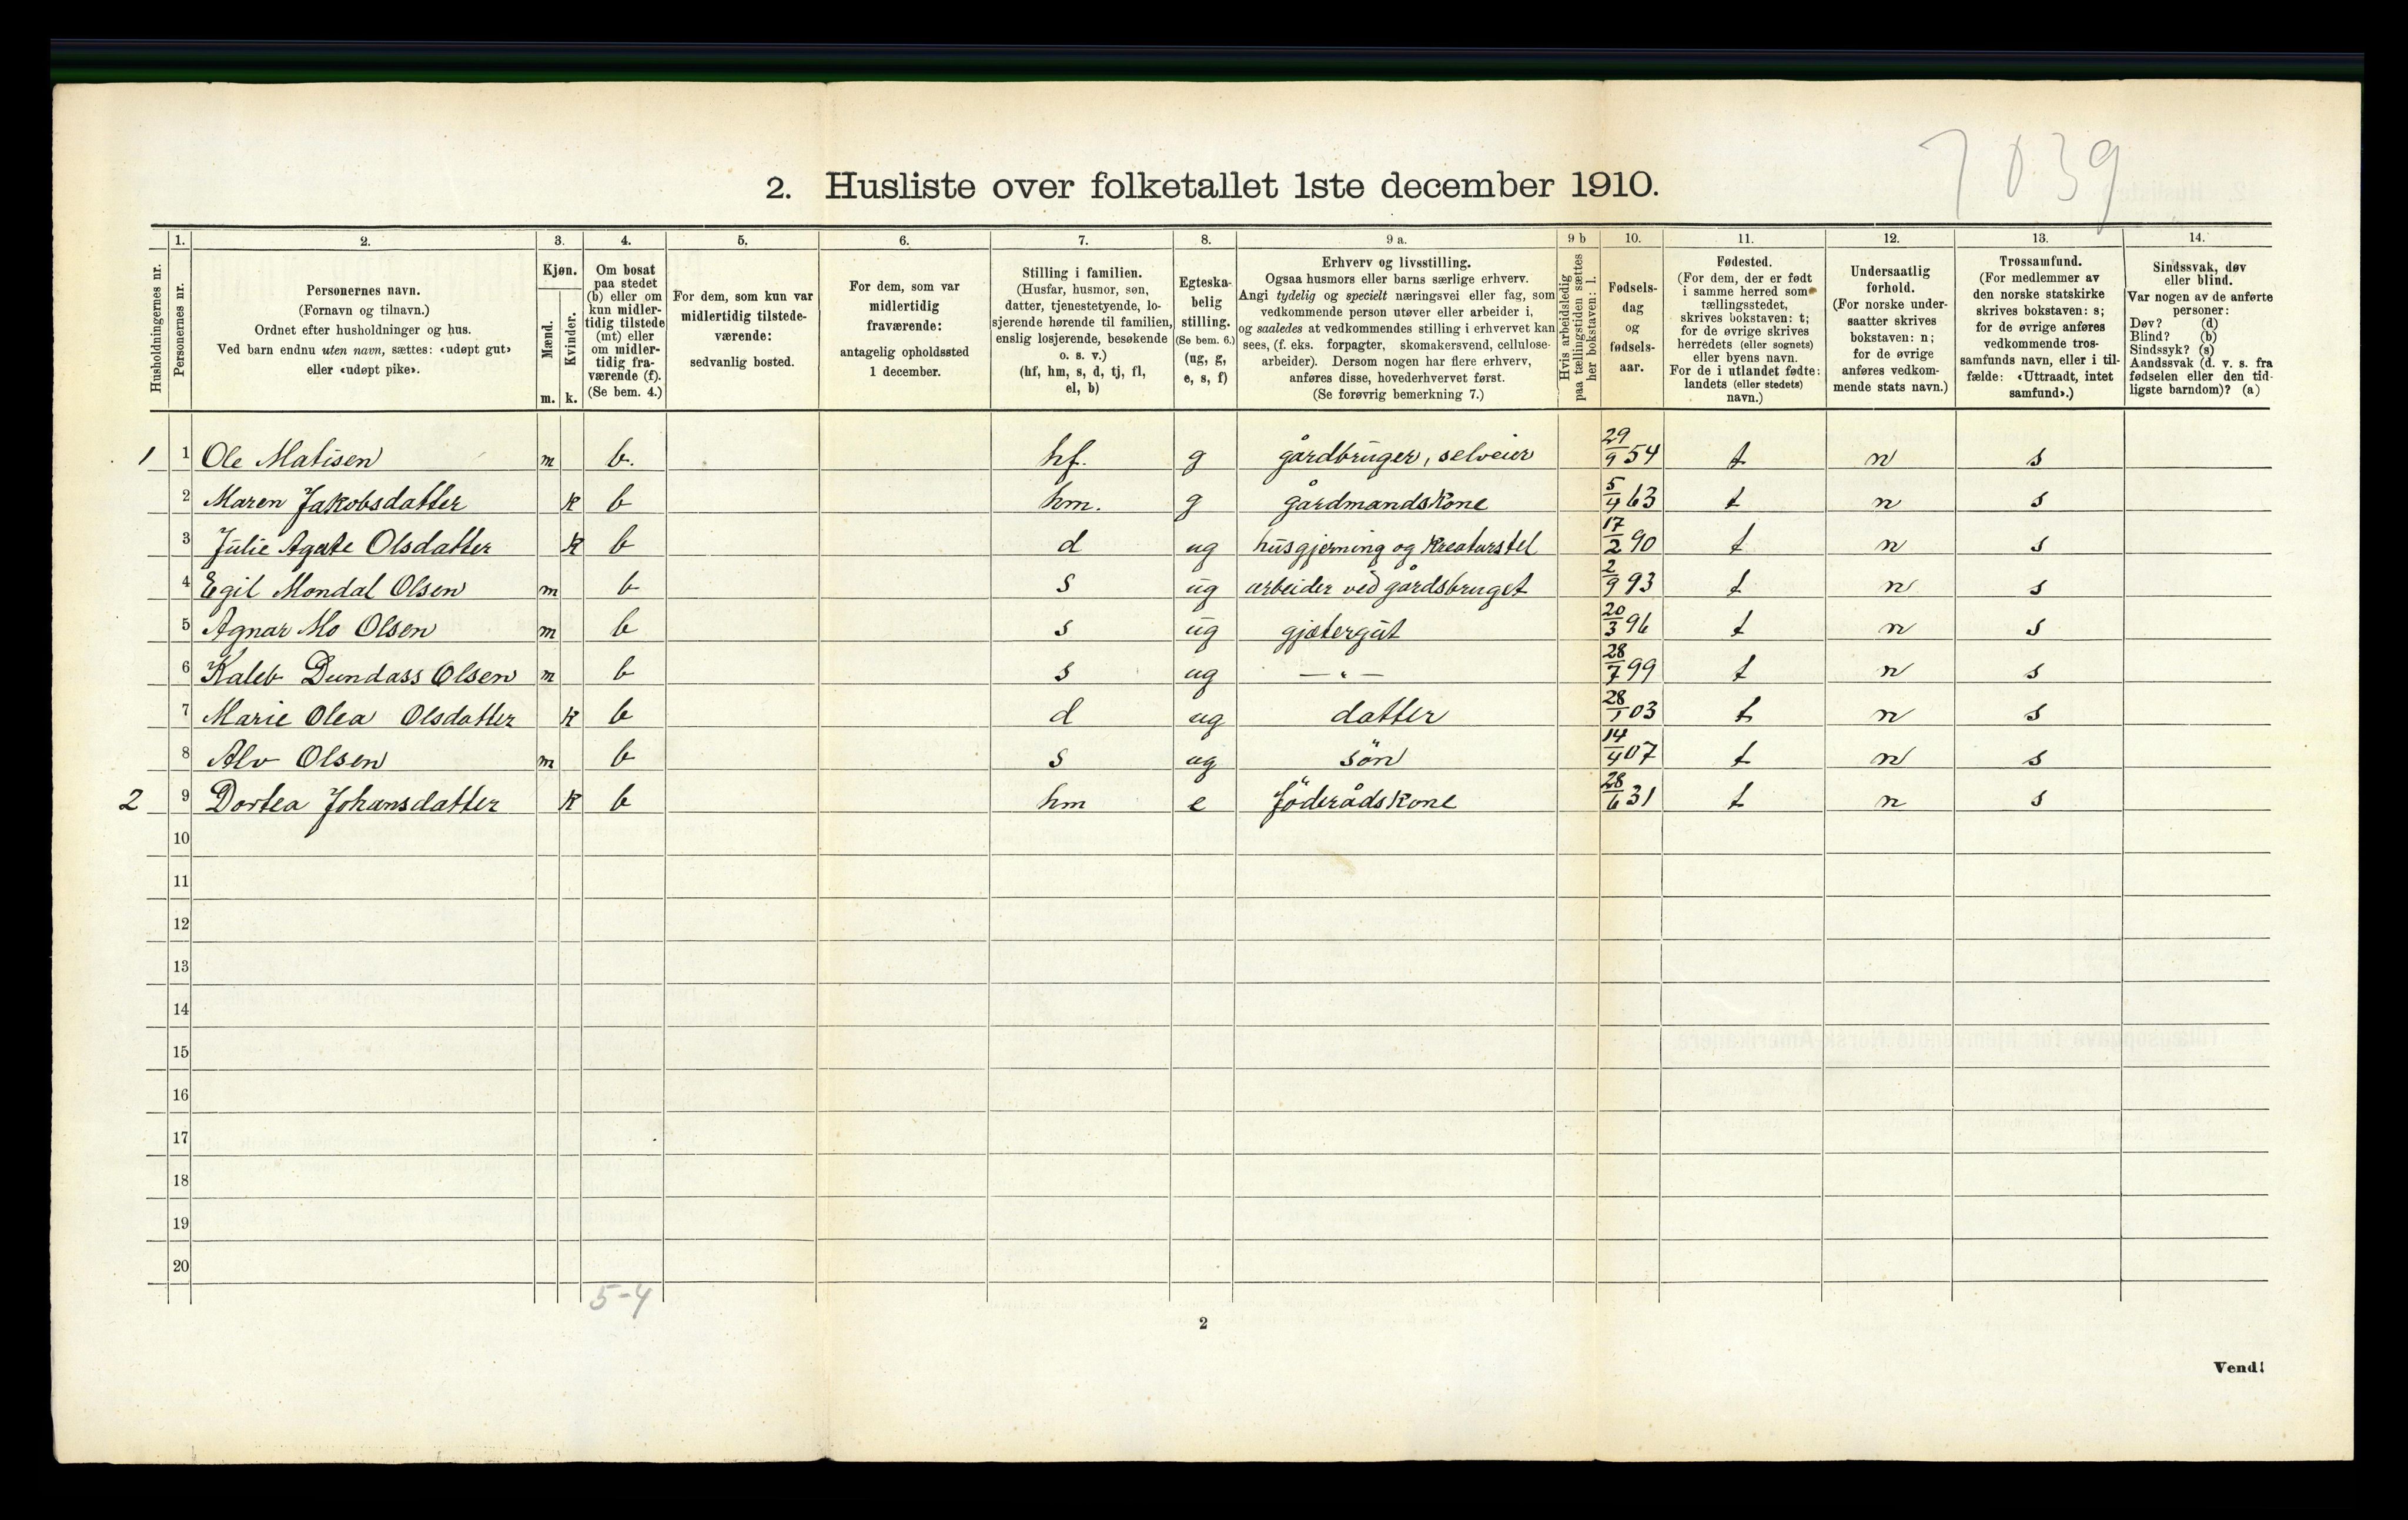 7039
2. Husliste over folketallet 1ste december 1910.
Husholdningernes nr.
1.
Personernes nr.
2.
Personernes navn.
(Fornavn og tilnavn.)
Ordnet efter husholdninger og hus.
Ved barn endnu uten navn, sættes: «udøpt gut»
eller «udøpt pike».
3.
Kjøn.
Mænd.
Kvinder.
m. k.
4.
Om bosat
paa stedet
(b) eller om
kun midler-
tidig tilstede
(mt) eller
om midler-
tidig fra-
værende (f).
(Se bem. 4.)
5.
For dem, som kun var
midlertidig tilstede-
værende:
sedvanlig bosted.
6.
For dem, som var
midlertidig
fraværende:
antagelig opholdssted
1 december.
7.
Stilling i familien.
(Husfar, husmor, søn,
datter, tjenestetyende, lo-
sjerende hørende til familien,
enslig losjerende, besøkende
o. s. v.)
(hf, hm, s, d, tj, fl,
el, b)
8.
Egteska-
belig
stilling.
(Se bem. 6.)
(ug, g,
e, s, f)
9 a.
Erhverv og livsstilling.
Ogsaa husmors eller barns særlige erhverv.
Angi tydelig og specielt næringsvei eller fag, som
vedkommende person utøver eller arbeider i,
og saaledes at vedkommendes stilling i erhvervet kan
sees, (f. eks. forpagter, skomakersvend, cellulose-
arbeider). Dersom nogen har flere erhverv,
anføres disse, hovederhvervet først.
(Se forøvrig bemerkning 7.)
9 b
Hvis arbeidsledig
paa tællingstiden sættes
her bokstaven: l.
10.
Fødsels-
dag
og
fødsels-
aar.
11.
Fødested.
(For dem, der er født
i samme herred som
tællingsstedet,
skrives bokstaven: t;
for de øvrige skrives
herredets (eller sognets)
eller byens navn.
For de i utlandet fødte:
landets (eller stedets)
navn.)
12.
Undersaatlig
forhold.
(For norske under-
saatter skrives
bokstaven: n;
for de øvrige
anføres vedkom-
mende stats navn.)
13.
Trossamfund.
(For medlemmer av
den norske statskirke
skrives bokstaven: s;
for de øvrige anføres
vedkommende tros-
samfunds navn, eller i til-
fælde: «Uttraadt, intet
samfund».)
14.
Sindssvak, døv
eller blind.
Var nogen av de anførte
personer:
Døv? (d)
Blind? (b)
Sindssyk? (s)
Aandssvak (d. v. s. fra
fødselen eller den tid-
ligste barndom)? (a)
1 1 Ole Matisen m b. hf. g gårdbruger, selveier 29/9 54 t n s
2 Maren Jakobsdatter k b hm. g gårdmandskone 5/4 63 t n s
3 Julie Agate Olsdatter k b d ug husgjerning og Kreaturstel 17/2 90 t n s
4 Egil Mondal Olsen m b s ug arbeider ved gårdsbruget 2/9 93 t n s
5 Agnar Mo Olsen m b s ug gjætergut 20/3 96 t n s
6 Kaleb Dundass Olsen m b s ug — " — 28/7 99 t n s
7 Marie Olea Olsdatter k b d ug datter 28/1 03 t n s
8 Alv Olsen m b s ug sön 14/4 07 t n s
2 9 Dortea Johansdatter k b hm e föderådskone 28/6 31 t n s
10
11
12
13
14
15
16
17
18
19
20
5-4
2
Vend!